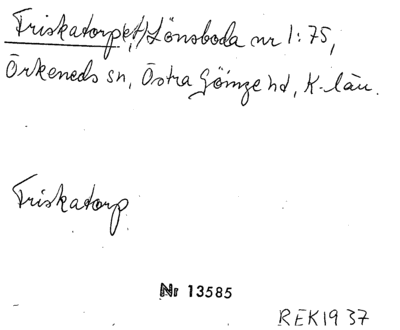 Friskatorp(et), Lönsboda nr 1:75,
Örkeneds sn, Östra Göinge hd, K-län.
Friskatorp
Nr 13585
REK1937